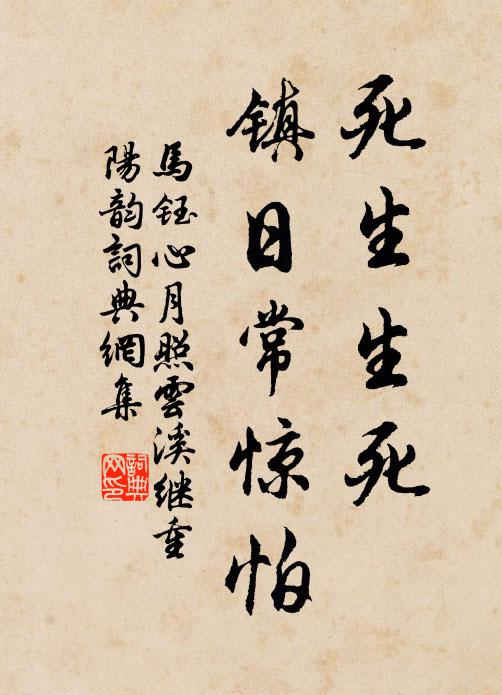 死生生死
镇日常惊怕
馬鈺心月照雲溪继重
陽韵詞典網集
詞典
网印